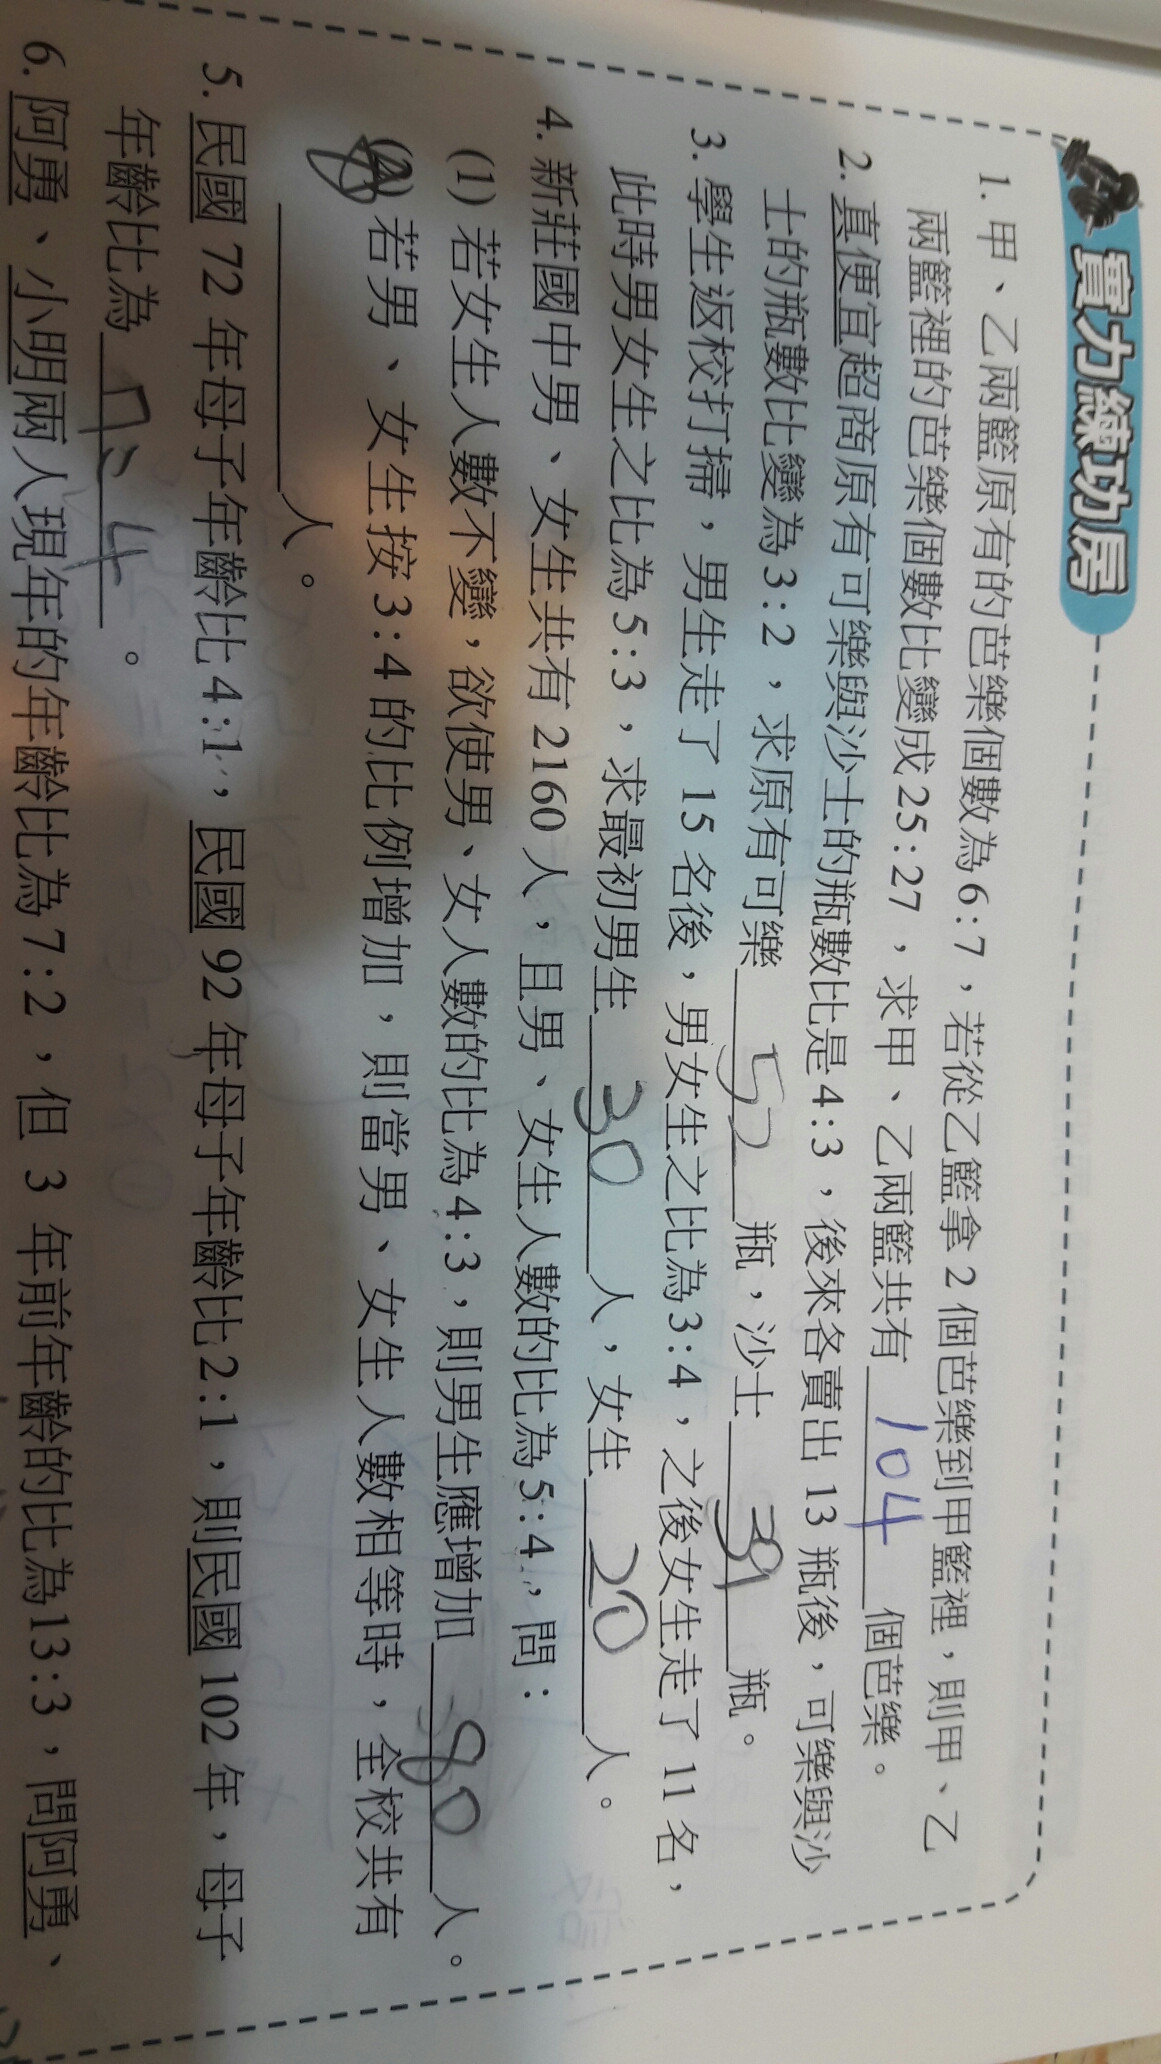 實力練功房
1. 甲、乙兩籃原有的芭樂個數為6:7，若從乙籃拿2個芭樂到甲籃裡，則甲、乙
兩籃裡的芭樂個數比變成25:27，求甲、乙兩籃共有 104 個芭樂。
2. 真便宜超商原有可樂與沙士的瓶數比是4:3，後來各賣出13瓶後，可樂與沙
士的瓶數比變為3:2，求原有可樂 52 瓶，沙士 39 瓶。
3. 學生返校打掃，男生走了15名後，男女生之比為3:4，之後女生走了11名，
此時男女生之比為5:3，求最初男生 30 人，女生 20 人。
4. 新莊國中男、女生共有2160人，且男、女生人數的比為5:4，問：
(1) 若女生人數不變，欲使男、女人數的比為4:3，則男生應增加 80 人。
(2) 若男、女生按3:4的比例增加，則當男、女生人數相等時，全校共有
人。
5. 民國72年母子年齡比4:1，民國92年母子年齡比2:1，則民國102年，母子
年齡比為 7:4 。
6. 阿勇、小明兩人現年的年齡比為7:2，但3年前年齡的比為13:3，問阿勇、